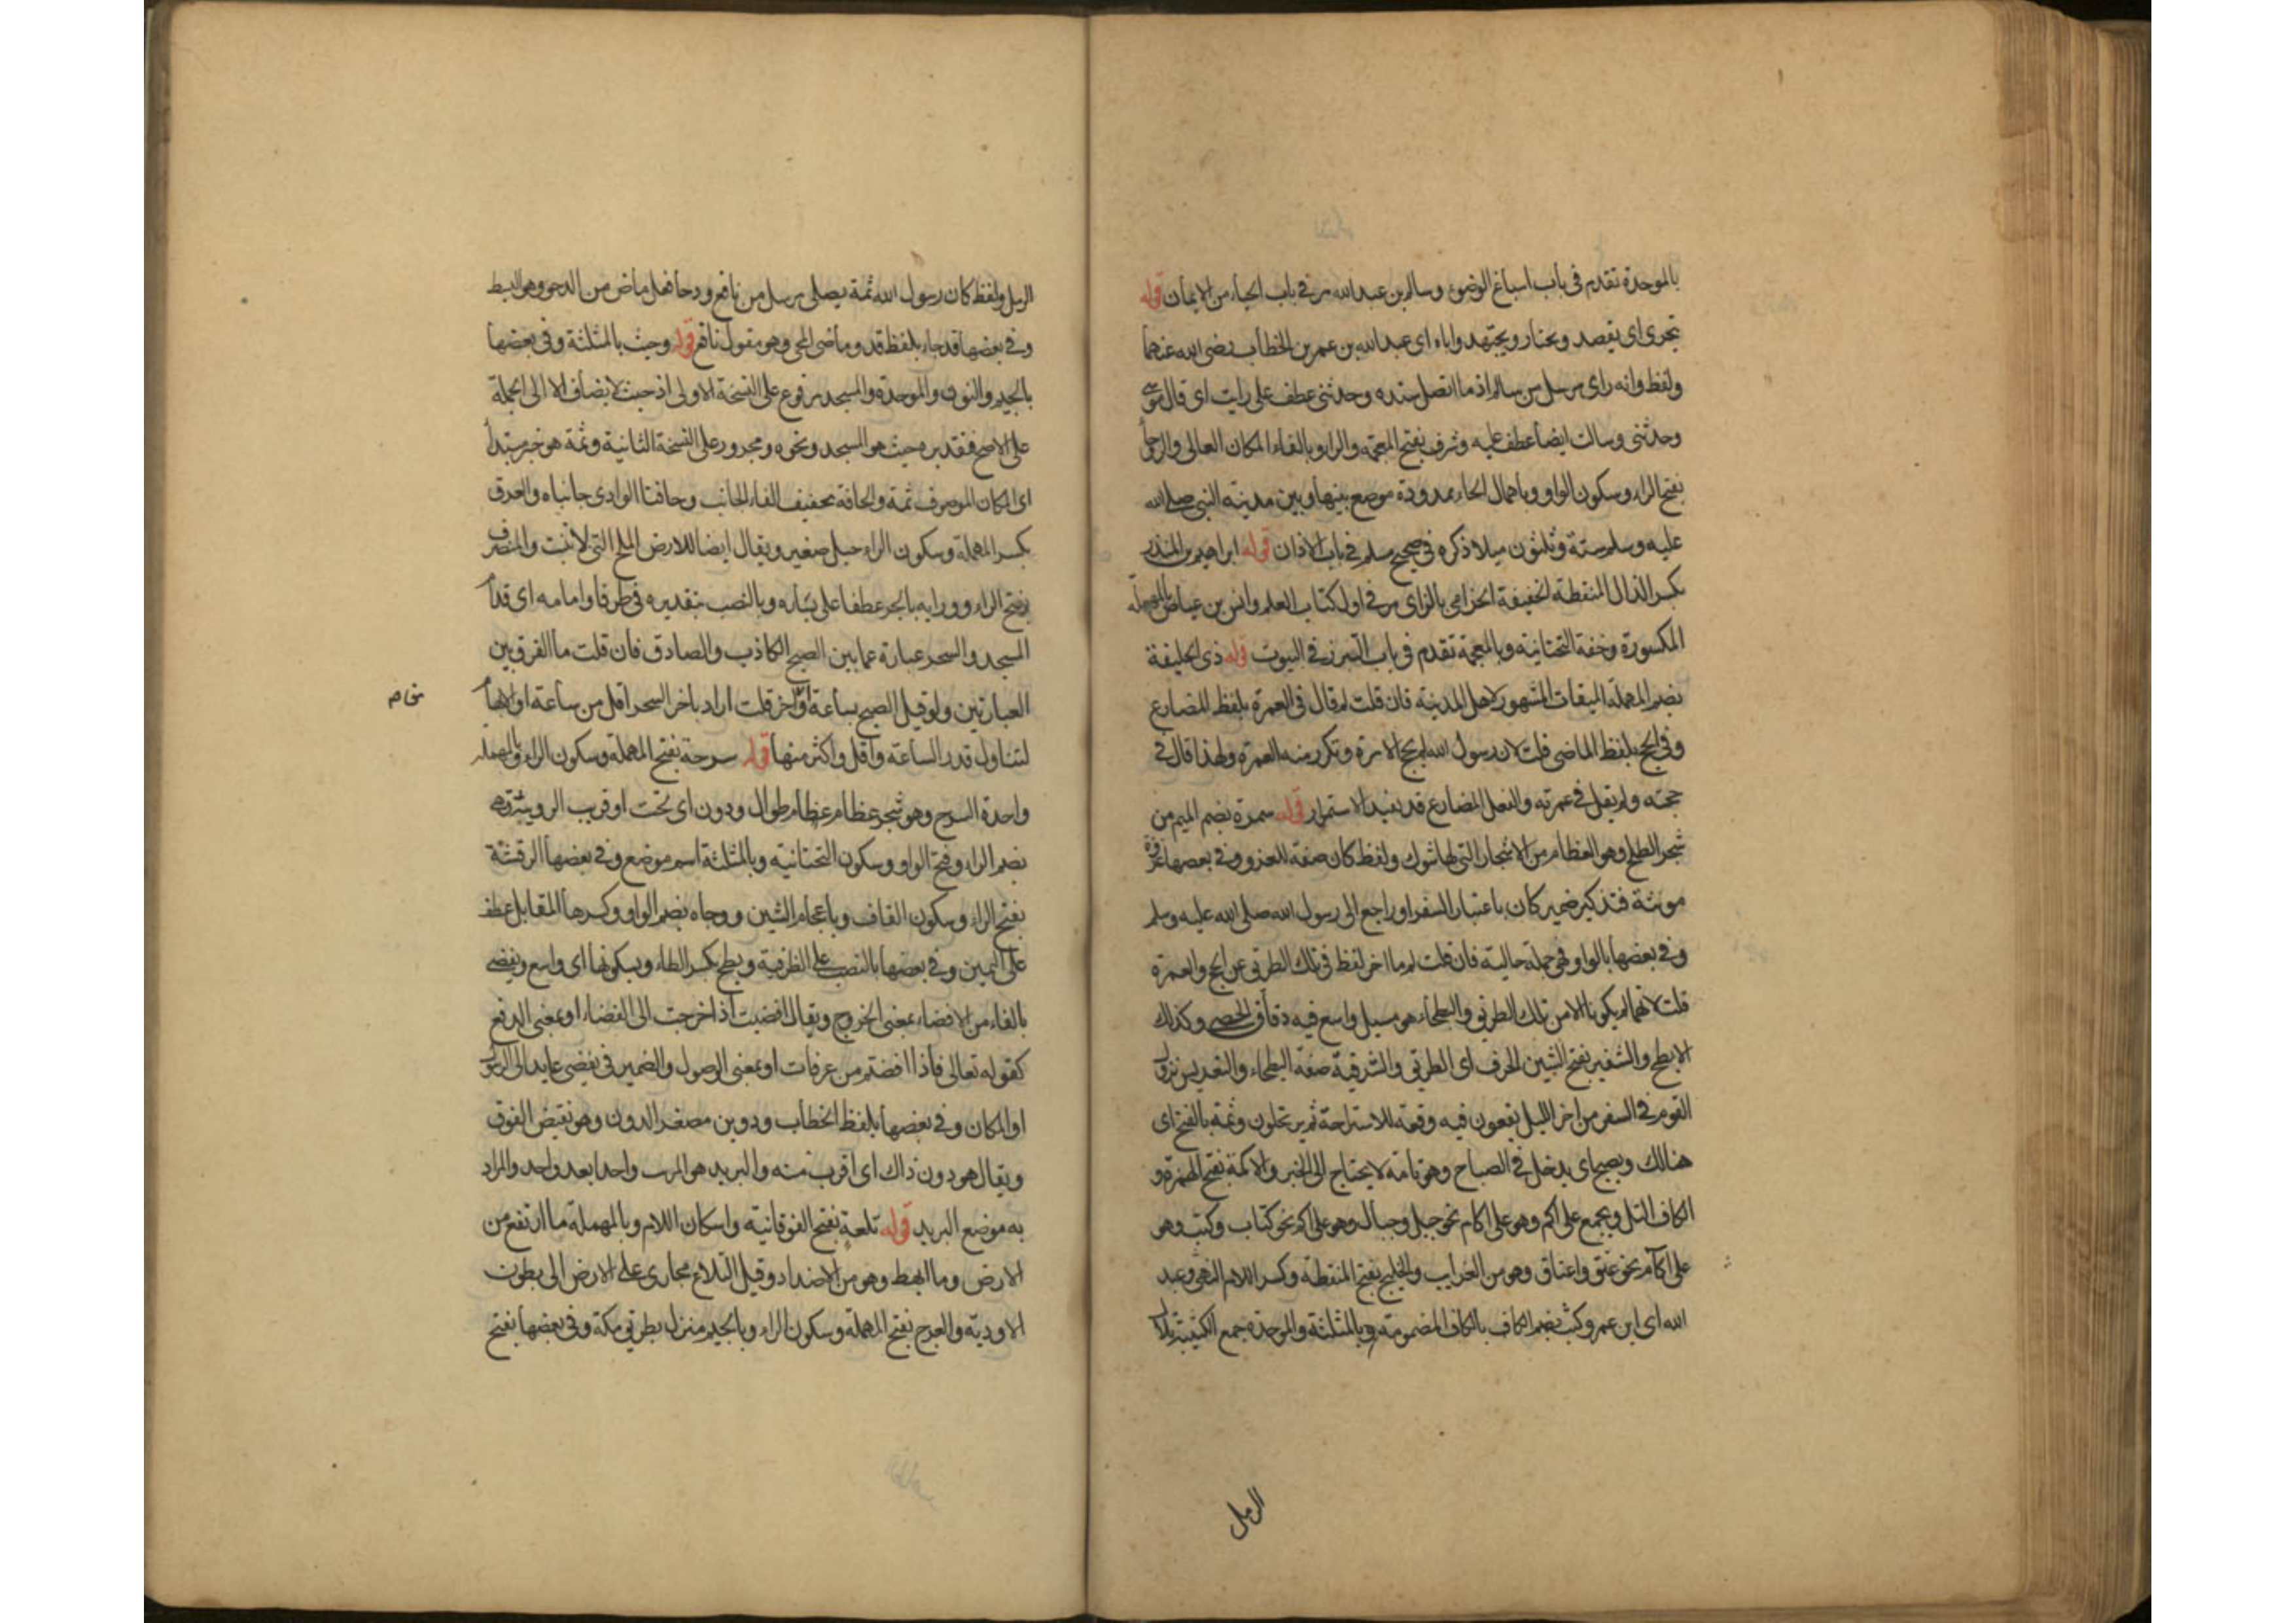 بالموحدة تقدم في باب اسباغ الوضوء وسالم بن عبد الله مر في باب الحياء من الايمان قوله
يتحرى اى يقصد ويختار ويجتهد واباه اى عبد الله بن عمر بن الخطاب رضى الله عنهما
ولفظ وانه راى مرسل من سالم اذ ما اتصل سنده وحدثنى عطف على رايت اى قال موسى
وحدثنى وسالت ايضا عطف عليه وشرف بفتح المعجمة والراء وبالفاء المكان العالى والروحا
بفتح الراء وسكون الواو وباهمال الحاء ممدودة موضع بينها وبين مدينة النبي صلى الله
عليه وسلم ستة وثلثون ميلا ذكره في صحيح مسلم في باب الاذان قوله ابراهيم بن المنذر
بكسر الذال المنقطة الخفيفة الحزامى بالزاى مر في اول كتاب العلم وانس بن عياض بالمهملة
المكسورة وخفة التحتانية وبالمعجمة تقدم في باب التبرز في البيوت قوله ذى الحليفة
بضم المهملة الميقات المشهور لاهل المدينة فان قلت لم قال في العمرة بلفظ المضارع
وفي الحج بلفظ الماضى قلت لان رسول الله لم يحج الا مرة وتكرر منه العمرة ولهذا قال في
حجته ولم يقل في عمرته والفعل المضارع قد يفيد الاستمرار قوله سمرة بضم الميم من
شجر الطلح وهو العظام من الاشجار التى لها شوك ولفظ كان صفة للغزو وفي بعضها غزوة
مونثة فتذكير ضمير كان باعتبار السفر او راجع الى رسول الله صلى الله عليه وسلم
وفي بعضها بالواو فهى جملة حالية فان قلت لم ما اخر لفظ في تلك الطريق عن الحج والعمرة
قلت لانهما لم يكونا الا من تلك الطريق والبطحاء هو مسيل واسع فيه دقاق الحصى وكذلك
الابطح والشفير بفتح الشين الحرف اى الطرف والشرقية صفة البطحاء والتعريس نزول
القوم في السفر من اخر الليل يقعون فيه وقعة للاستراحة ثم يرتحلون وثمة بالفتح اى
هنالك ويصبح اى يدخل في الصباح وهو تامة لا يحتاج الى الخبر والاكمة بفتح الهمزة و
الكاف التل ويجمع على اكم وهو على اكام نحو جبل وجبال وهو على اكم نحو كتاب وكتب وهو
على آكام نحو عنق واعناق وهو من الغرايب والخليج بفتح المنقطة وكسر اللام النهر وعبد
الله اى ابن عمر وكثب بضم الكاف بالكاف المضمومة وبالمثلثة والموحدة جمع الكثيب تلال
الرمل
الرمل ولفظ كان رسول الله ثمة يصلى مرسل من نافع ودحا فعل ماض من الدحو وهو البسط
وفي بعضها قد جاء بلفظ قد وماضى المجى وهو مقول نافع قوله وحيث بالمثلثة وفي بعضها
بالجيم والنون والموحدة والمسجد مرفوع على النسخة الاولى اذ حيث لا يضاف الا الى الجملة
على الاصح فتقديره حيث هو المسجد ونحوه ومجرور على النسخة الثانية وثمة هو خبر مبتدأ
اى المكان الموصوف ثمة والحافة بتخفيف الفاء الجانب وحافتا الوادى جانباه والعرق
بكسر المهملة وسكون الراء جبل صغير ويقال ايضا للارض الملح التى لا تنبت والمنصرف
بفتح الراء وورايه بالجر عطفا على يساره وبالنصب بتقديره في ظرفا وامامه اى قدام
المسجد والسحر عبارة عما بين الصبح الكاذب والصادق فان قلت ما الفرق بين
العبارتين ولو قيل الصبح بساعة او اخر قلت اراد باخر السحر اقل من ساعة او الابهام
لتناول قدر الساعة واقل واكثر منها قوله سرحة بفتح المهملة وسكون الراء وبالمهملة
واحدة السرح وهو شجر عظام عظام طوال ودون اى تحت او قرب الرويثة وهى
بضم الراء وفتح الواو وسكون التحتانية وبالمثلثة اسم موضع وفي بعضها الرقشة
بفتح الراء وسكون القاف وباعجام الشين ووجاه بضم الواو وكسرها المقابل عطف
على اليمين وفي بعضها بالنصب على الظرفية وبطح بكسر الطاء وبسكونها اى واسع ويفضى
بالفاء من الافضاء بمعنى الخروج ويقال افضيت اذا خرجت الى الفضاء او بمعنى الدفع
كقوله تعالى فاذا افضتم من عرفات او بمعنى الوصول والضمير في يفضى عايد الى الرسول
او المكان وفي بعضها بلفظ الخطاب ودوين مصغر الدون وهو نقيض الفوق
ويقال هو دون ذاك اى اقرب منه والبريد هو المرتب واحدا بعد واحد والمراد
به موضع البريد قوله تلعة بفتح الفوقانية واسكان اللام وبالمهملة ما ارتفع من
الارض وما انهبط وهو من الاضداد وقيل التلاع مجارى على الارض الى بطون
الاودية والعرج بفتح المهملة وسكون الراء وبالجيم منزل بطريق مكة وفي بعضها بفتح